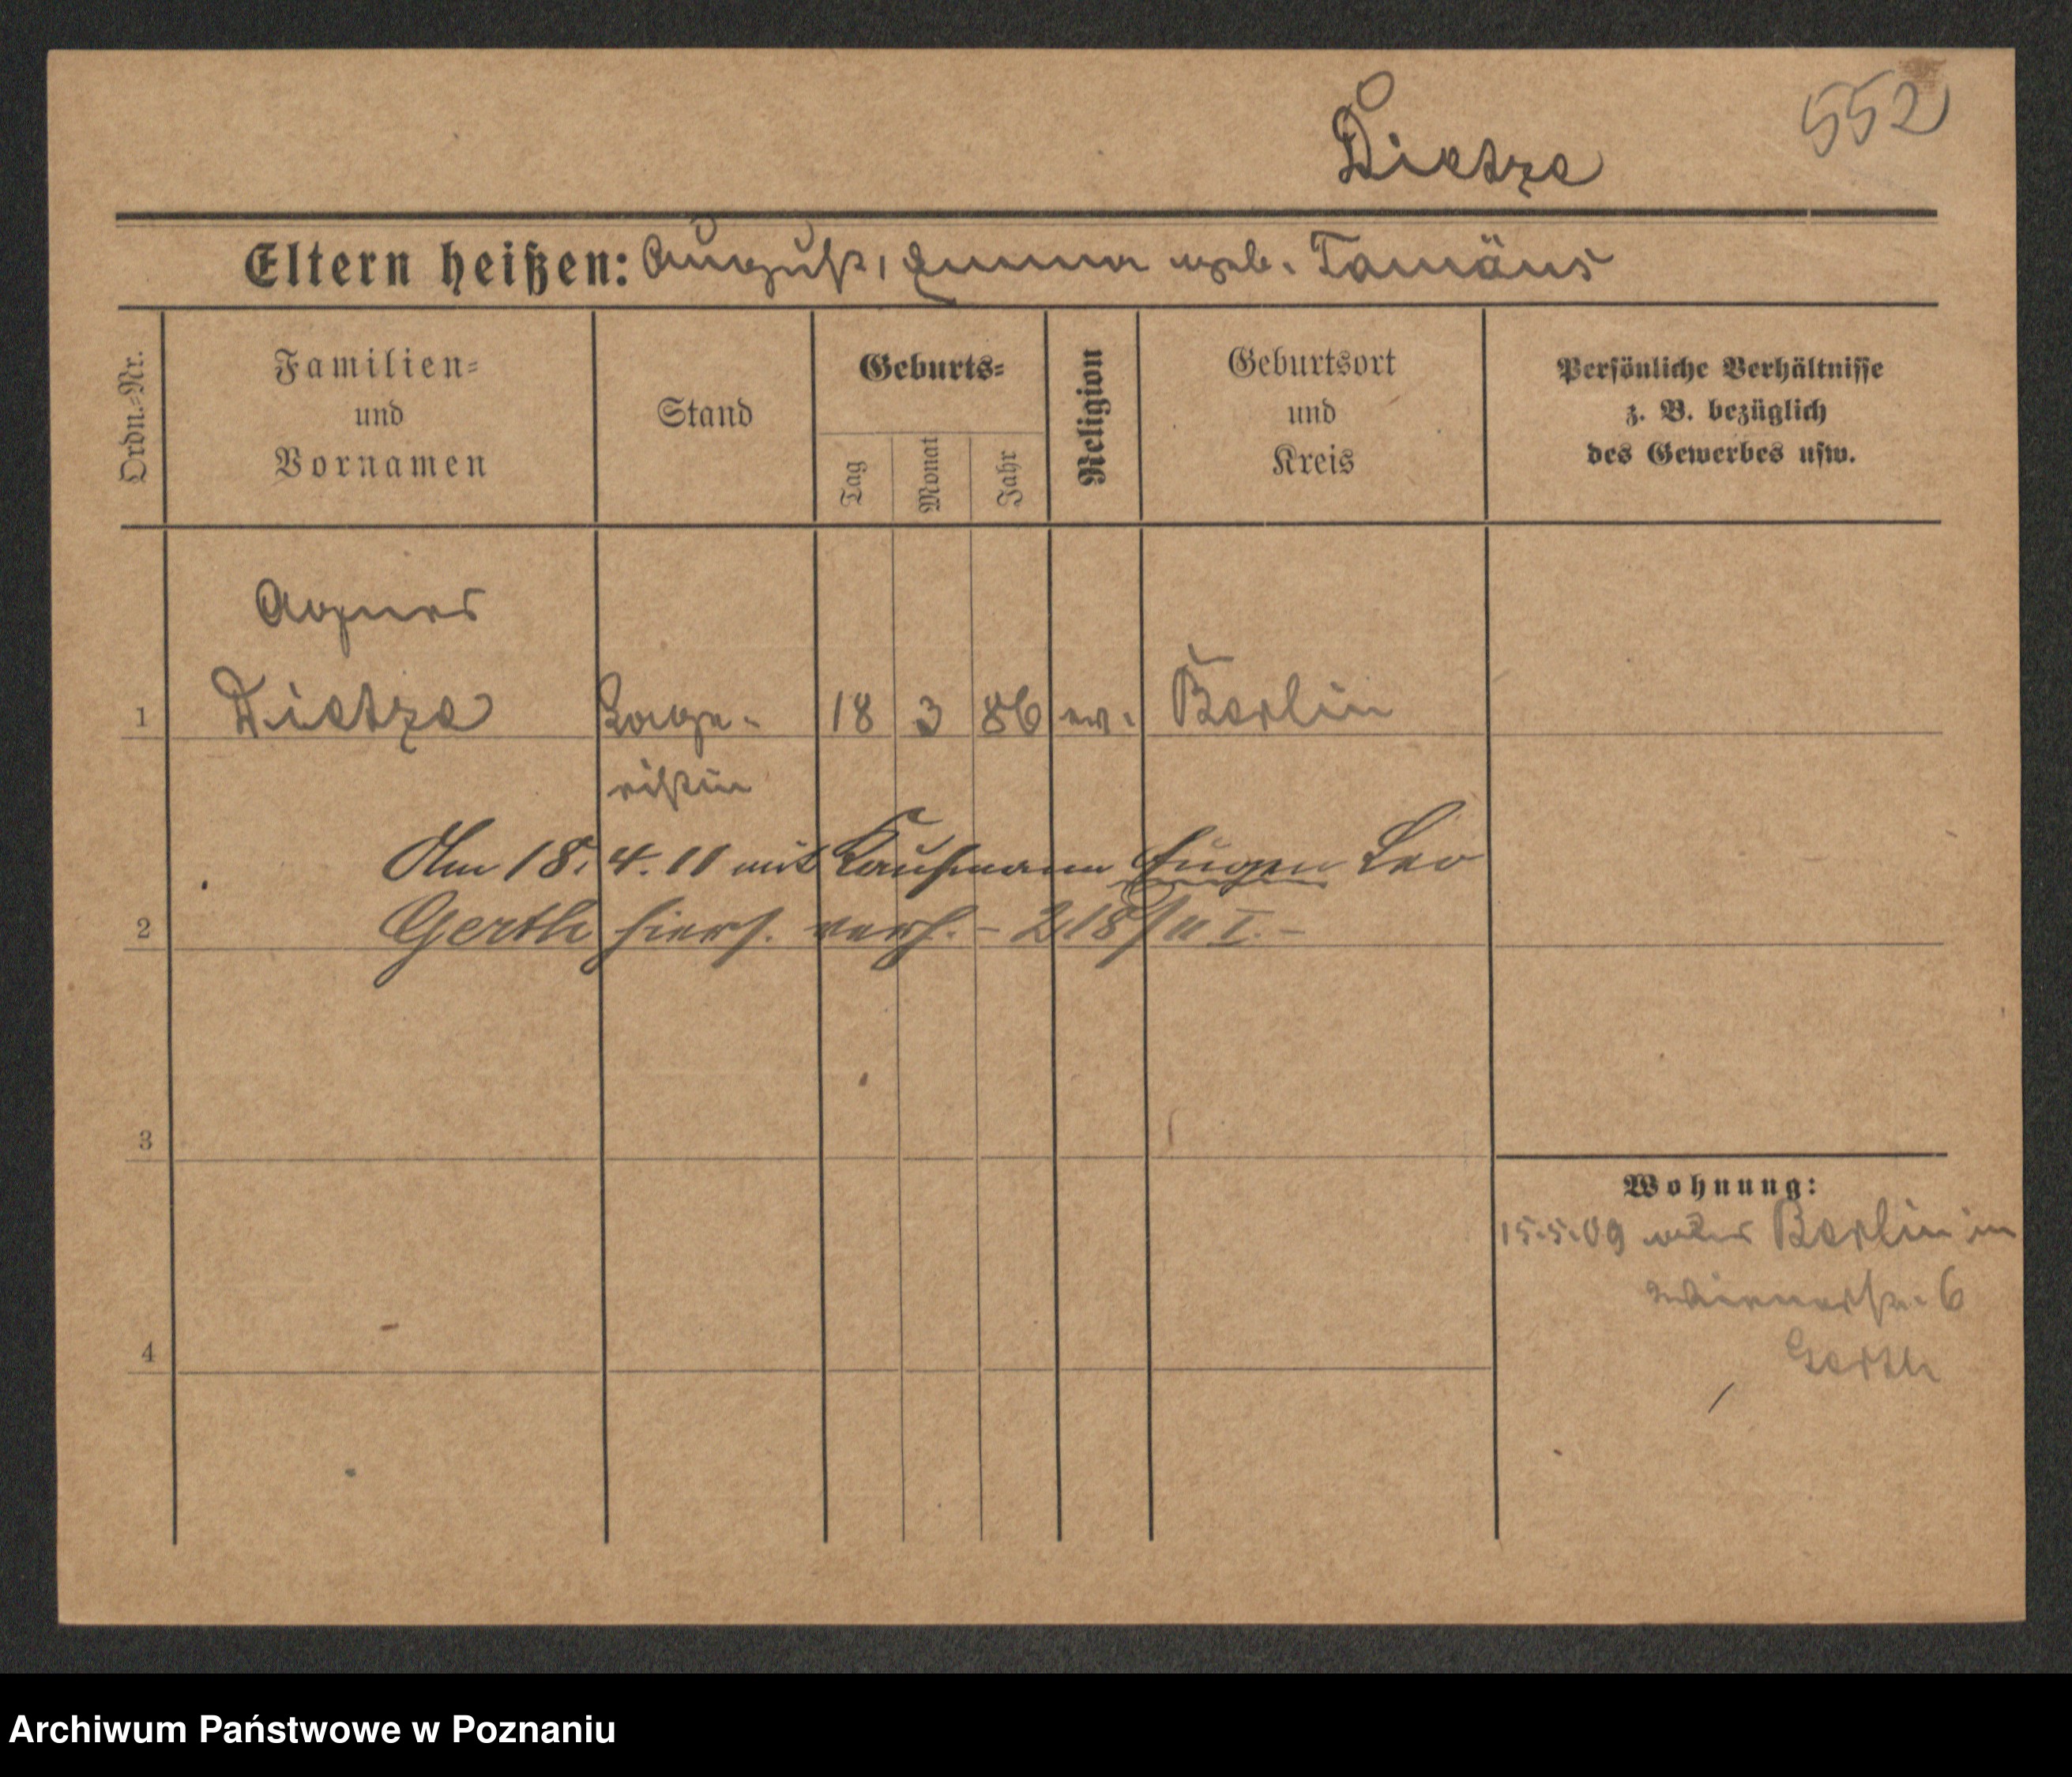 552
Dietze
Eltern heißen: August, Emma geb. Tamäus
Ordn.-Nr.
Familien-
und
Vornamen
Stand
Geburts-
Tag
Monat
Jahr
Religion
Geburtsort
und
Kreis
Persönliche Verhältnisse
z. B. bezüglich
des Gewerbes usw.
Agnes
1 Dietze Lage- 18 3 86 ev. Berlin
ristin
Am 18.4.11 mit Kaufmann Eugen Leo
2 Gerth hiers. verh. - 218/11 I. -
3
Wohnung:
15.5.09 Berlin in
Wienerstr. 6
Gerth
4
Archiwum Państwowe w Poznaniu